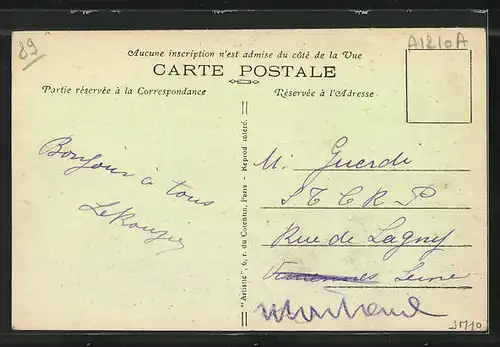 89
A1210A
Aucune inscription n'est admise du côté de la Vue
CARTE POSTALE
Partie réservée à la Correspondance
Réservée à l'Adresse
Bonjour à tous
LeRouzic
"Artistic", 6, r. du Cotentin, Paris - Reprod. interd.
M. Guerdi
S T C R P
Rue de Lagny
Vincennes Seine